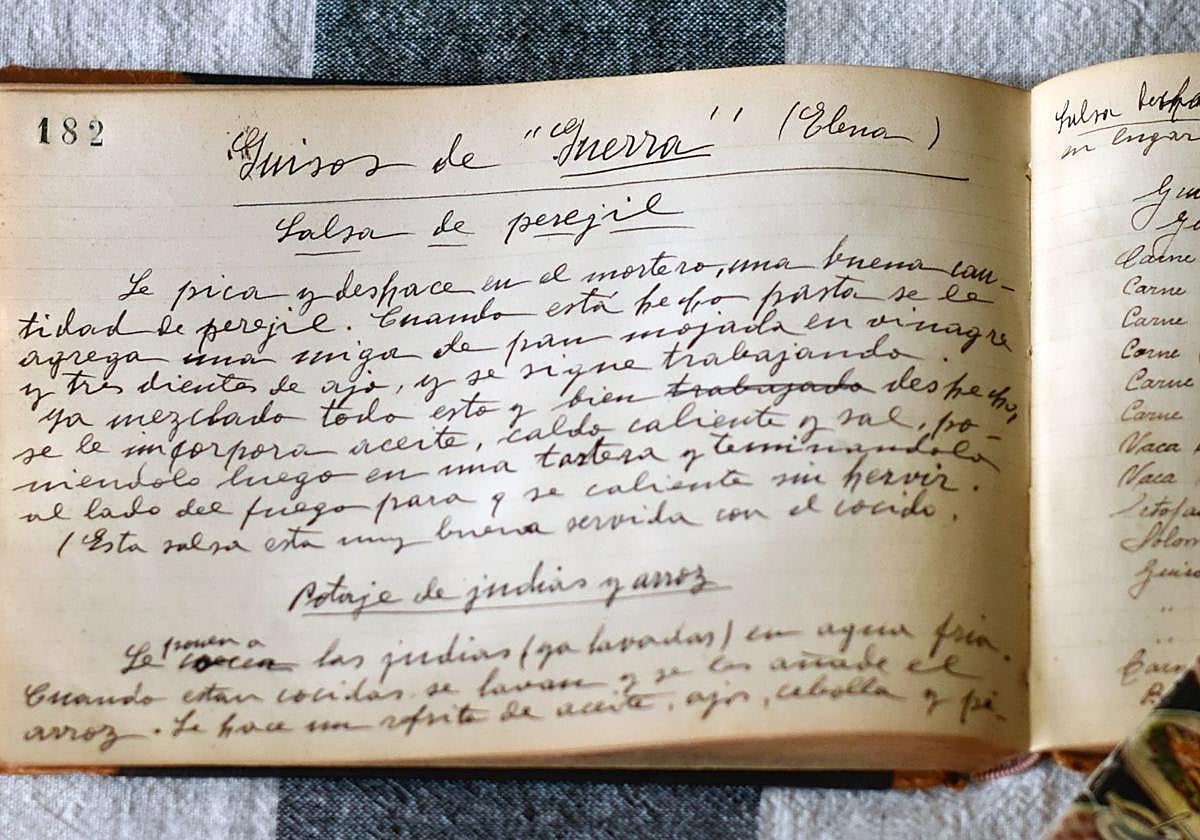 182
Guisos de "Guerra" (Elena)
Salsa de perejil
Se pica y deshace en el mortero, una buena can-
tidad de perejil. Cuando está hecho pasta se le
agrega una miga de pan mojada en vinagre
y tres dientes de ajo, y se sigue trabajando.
Ya mezclado todo esto y bien trabajado deshecho,
se le incorpora aceite, caldo caliente y sal, po-
niendolo luego en una tartera y teminandola
al lado del fuego para q se caliente sin hervir.
(Esta salsa esta muy buena servida con el cocido.
Potaje de judias y arroz
Se ponen a cocen las judias (ya lavadas) en agua fria.
Cuando estan cocidas se lavan y se les añade el
arroz. Se hace un refrito de aceite, ajos, cebolla y pi-
Salsa
en lugar
Carne
Carne
Carne
Carne
Carne
Carne
Vaca
Vaca
Solom
Guiso
"
"